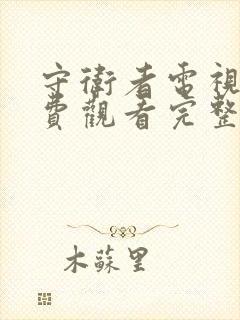 守衛者電視
費觀看完整
木蘇里